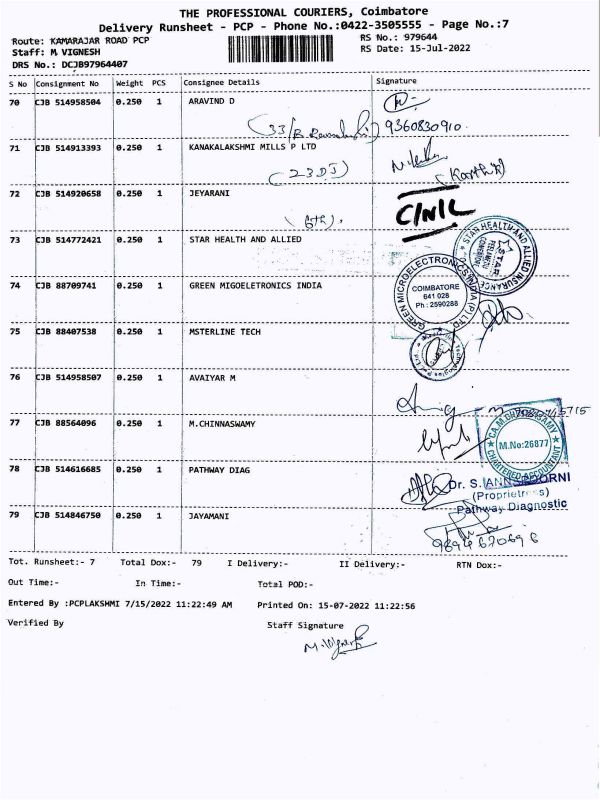 THE PROFESSIONAL COURIERS, Coimbatore
Delivery Runsheet - PCP - Phone No.:0422-3505555 - Page No.:7
Route: KAMARAJAR ROAD PCP RS No.: 979644
Staff: M VIGNESH RS Date: 15-Jul-2022
DRS No.: DCJB97964407
S No Consignment No Weight PCS Consignee Details Signature
70 CJB 514958504 0.250 1 ARAVIND D
(33/ 9360830910.
71 CJB 514913393 0.250 1 KANAKALAKSHMI MILLS P LTD
(23DJ) (Karthik)
72 CJB 514920658 0.250 1 JEYARANI
(6th).
73 CJB 514772421 0.250 1 STAR HEALTH AND ALLIED
STAR HEALTH AND ALLIED INSURANCE
STAR
74 CJB 88709741 0.250 1 GREEN MIGOELETRONICS INDIA
GREEN MICROELECTRONICS INDIA (P) LTD
COIMBATORE
641 028
Ph : 2590288
75 CJB 88407538 0.250 1 MSTERLINE TECH
76 CJB 514958507 0.250 1 AVAIYAR M
77 CJB 88564096 0.250 1 M.CHINNASWAMY
M.No:26877
CHARTERED ACCOUNTANT
78 CJB 514616685 0.250 1 PATHWAY DIAG
Dr. S.
(Proprietress)
Pathway Diagnostic
79 CJB 514846750 0.250 1 JAYAMANI
Tot. Runsheet:- 7 Total Dox:- 79 I Delivery:- II Delivery:- RTN Dox:-
Out Time:- In Time:- Total POD:-
Entered By :PCPLAKSHMI 7/15/2022 11:22:49 AM Printed On: 15-07-2022 11:22:56
Verified By Staff Signature
M.Vignesh